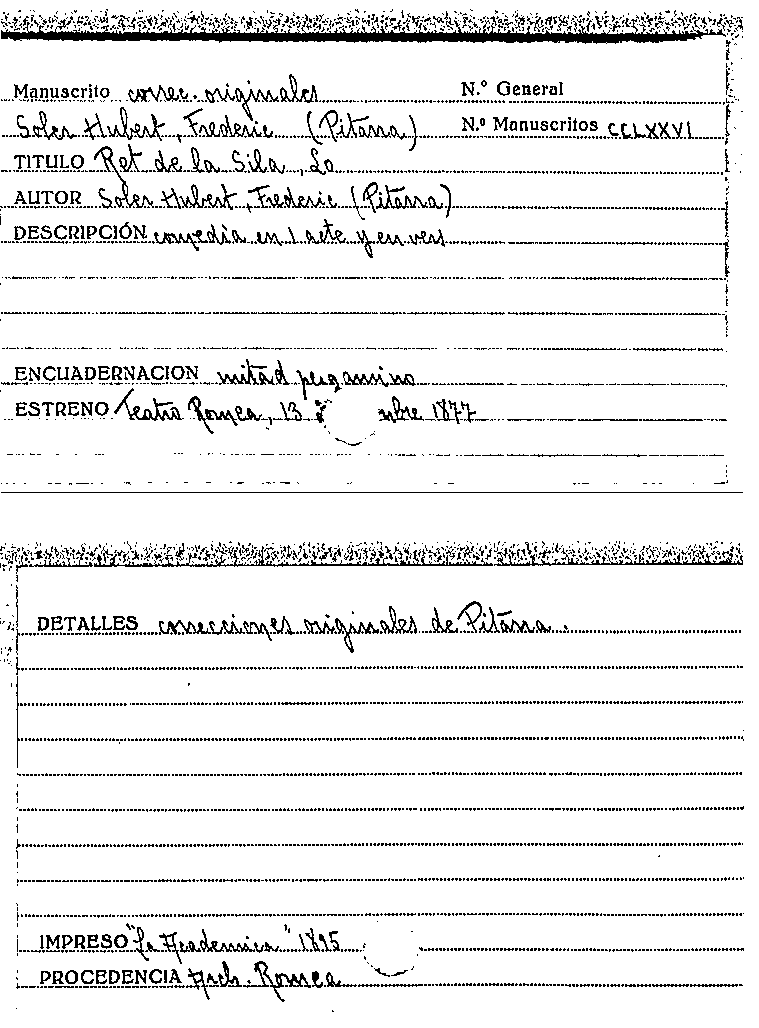 Manuscrito correc. originales N.º General
Soler Hubert, Frederic (Pitarra) N.º Manuscritos CCLXXVI
TITULO Ret de la Sila, Lo
AUTOR Soler Hubert, Frederic (Pitarra)
DESCRIPCIÓN comedia en 1 acte y en vers
ENCUADERNACION mitad pergamino
ESTRENO Teatro Romea, 13 mbre 1877
DETALLES correcciones originales de Pitarra.
IMPRESO "La Academica" 1895
PROCEDENCIA Arch. Romea